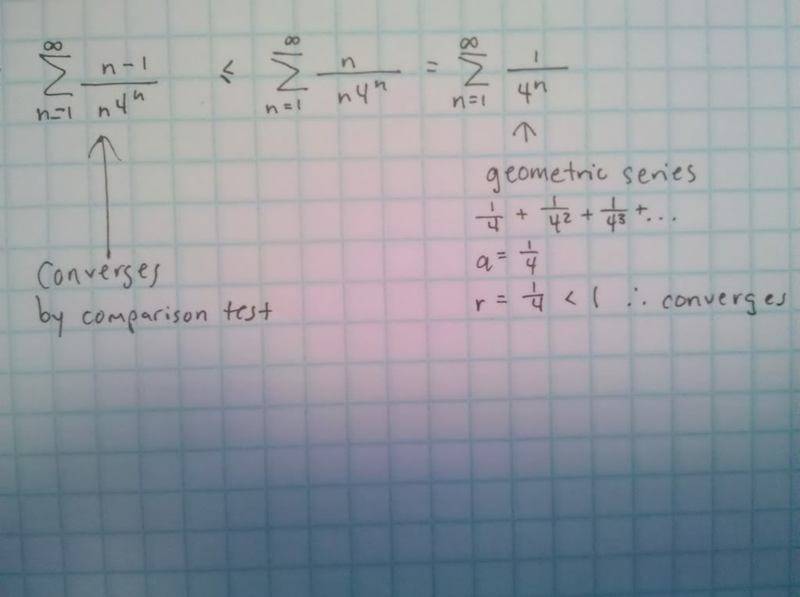 ∞ ∞ ∞
Σ n-1 / n4ⁿ ≤ Σ n / n4ⁿ = Σ 1 / 4ⁿ
n=1 n=1 n=1
geometric series
1/4 + 1/4² + 1/4³ + ...
a = 1/4
r = 1/4 < 1 ∴ converges
Converges
by comparison test